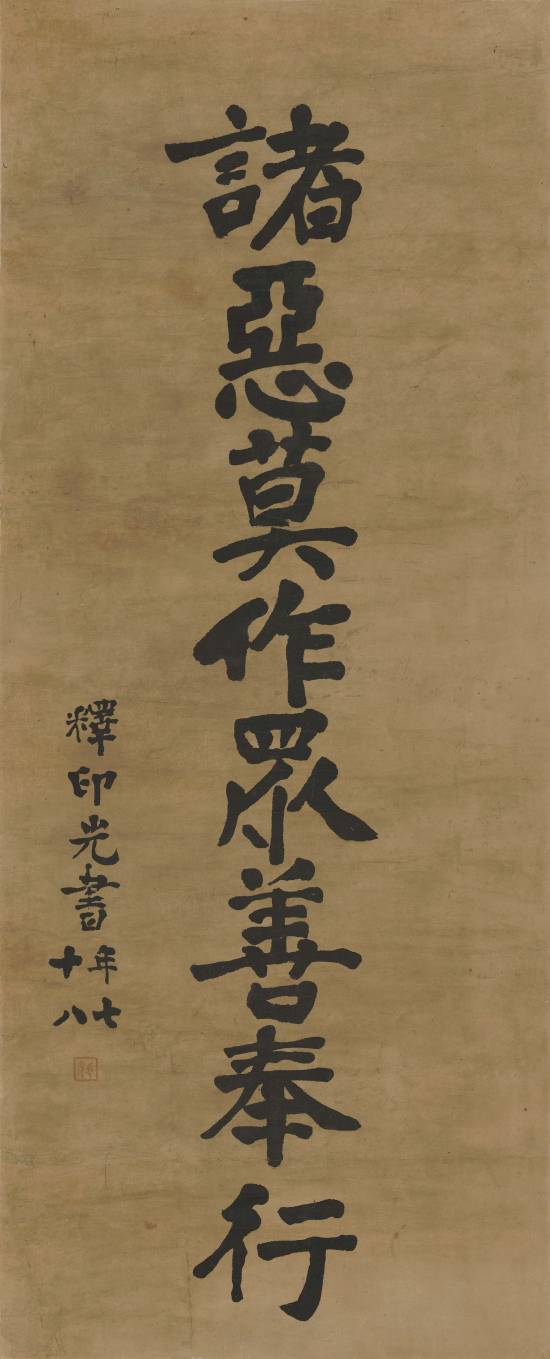 諸惡莫作眾善奉行
釋印光書
年七
十八